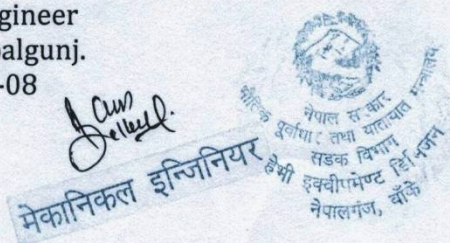 gineer
algunj.
-08
मेकानिकल इन्जिनियर
नेपाल सरकार
भौतिक पूर्वाधार तथा यातायात मन्त्रालय
सडक विभाग
हेभी इक्वीपमेण्ट डिभिजन
नेपालगंज, बाँके